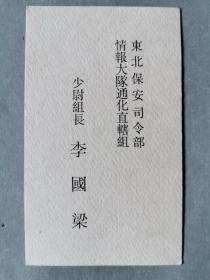 東北保安司令部
情報大隊通化直轄組
少尉組長 李國梁